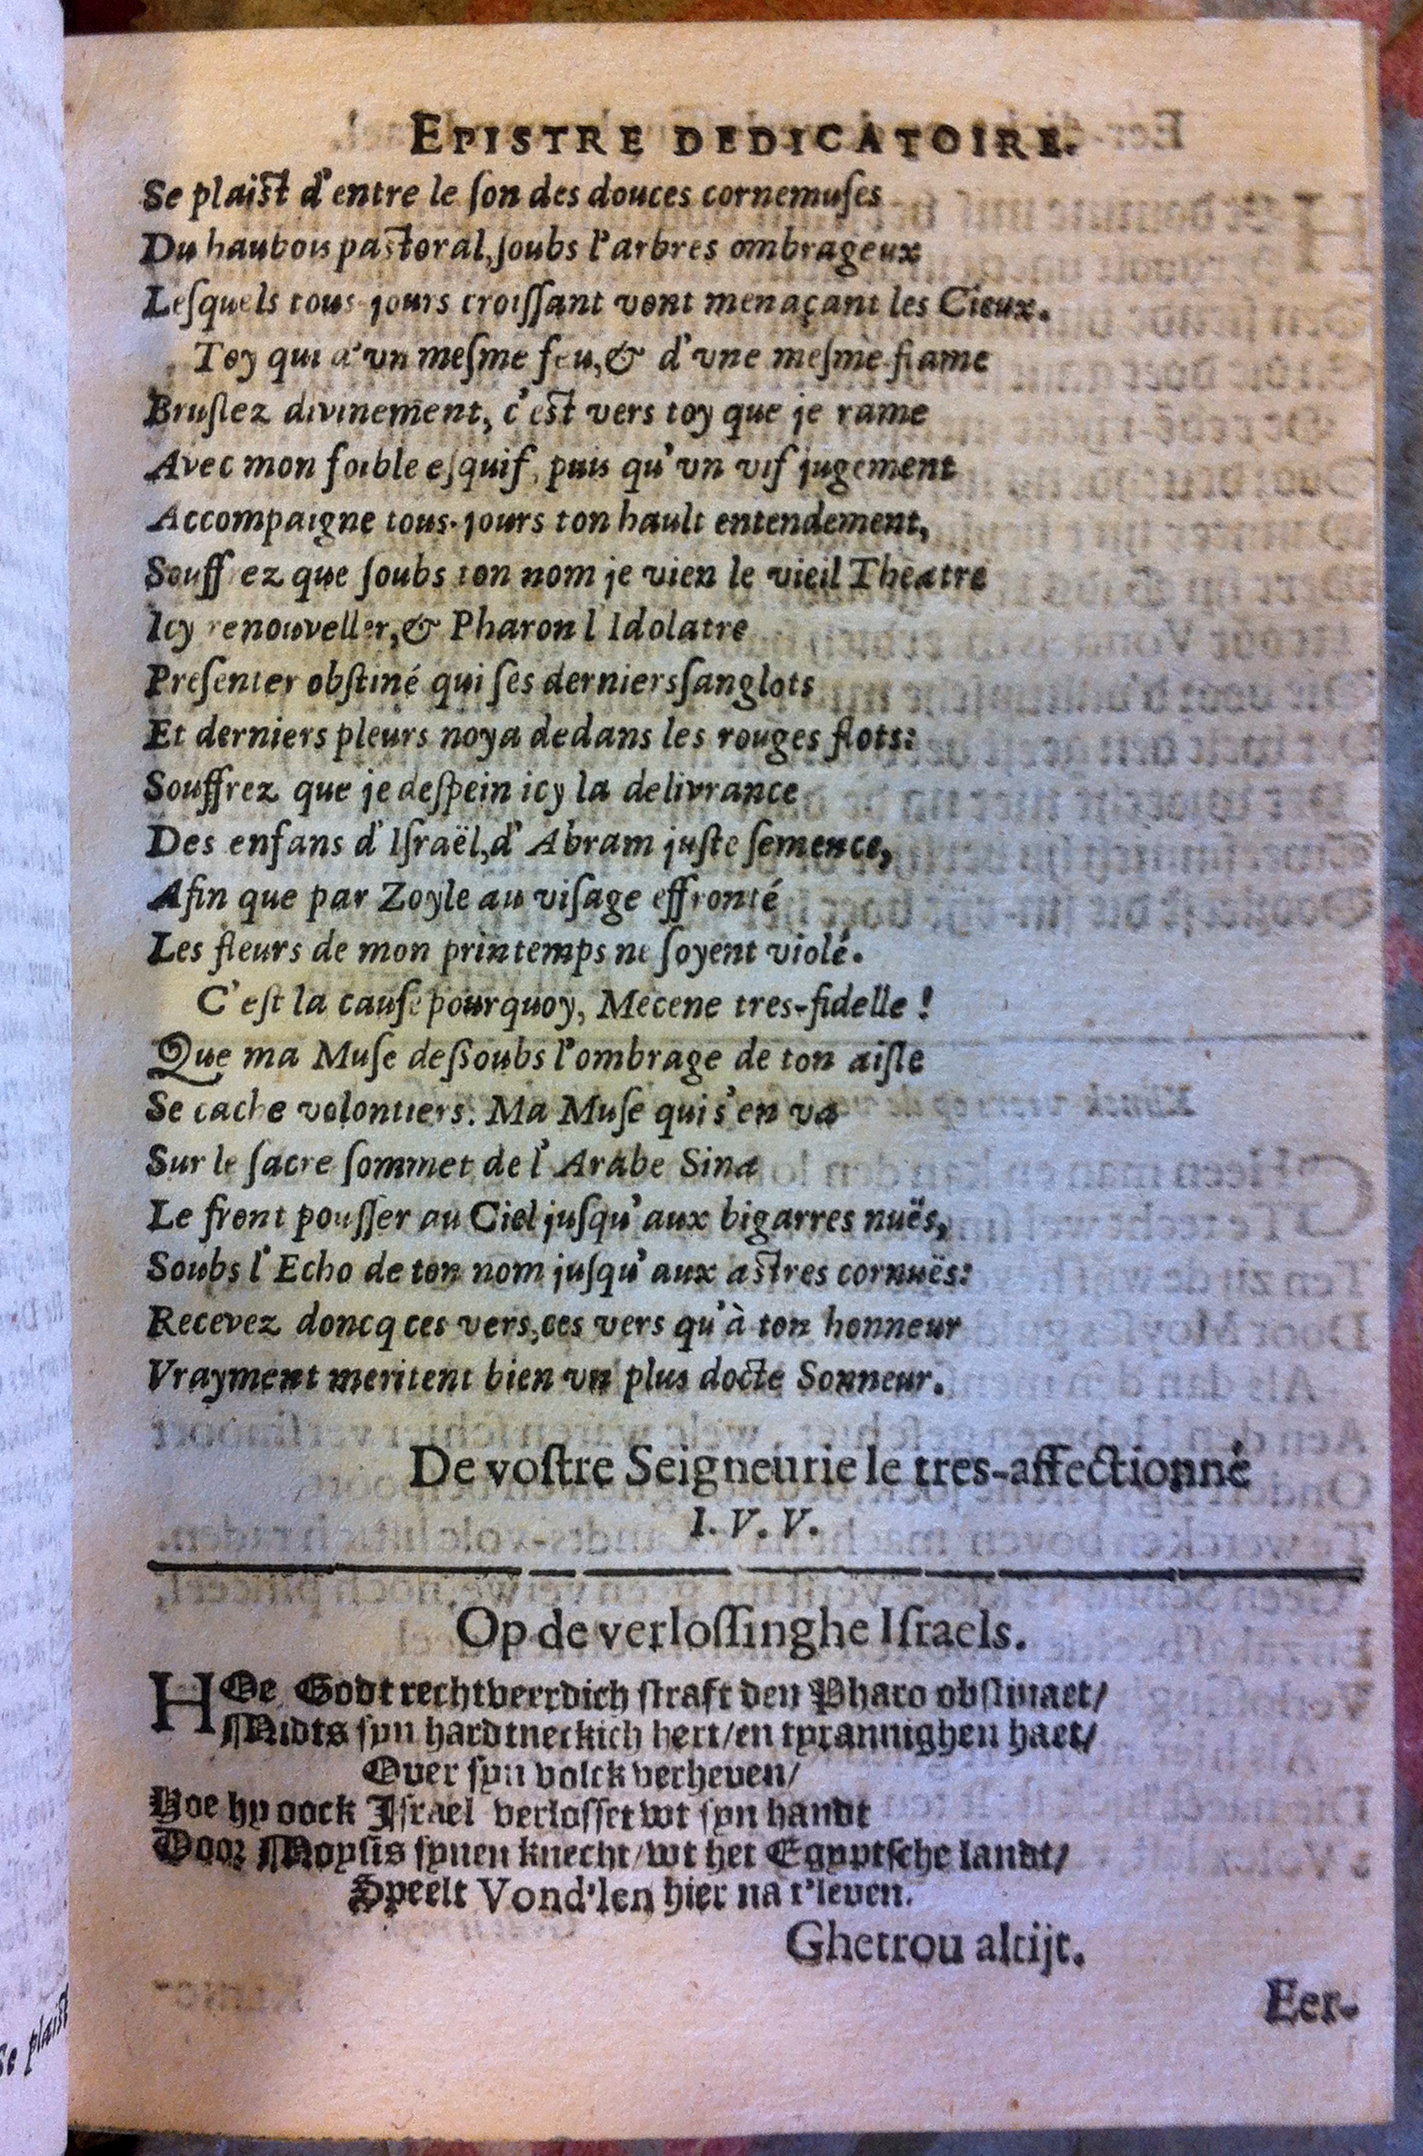 EPISTRE DEDICATOIRE.
Se plaist d'entre le ſon des douces cornemuſes
Du haubois pastoral, ſoubs l'arbres ombrageux
Leſquels tous-jours croiſſant vont menaçant les Cieux.
Toy qui d'vn meſme feu, & d'vne meſme flame
Bruſlez divinement, c'est vers toy que je rame
Avec mon foible eſquif, puis qu'vn vif jugement
Accompaigne tous-jours ton hault entendement,
Souffrez que ſoubs ton nom je vien le vieil Theatre
Icy renouveller, & Pharon l'Idolatre
Preſenter obſtiné qui ſes derniers ſanglots
Et derniers pleurs noya dedans les rouges flots:
Souffrez que je deſpein icy la delivrance
Des enfans d'Iſraël, d'Abram juſte ſemence,
Afin que par Zoyle au viſage effronté
Les fleurs de mon printemps ne ſoyent violé.
C'eſt la cauſe pourquoy, Mecene tres-fidelle!
Que ma Muſe deſsoubs l'ombrage de ton aiſle
Se cache volontiers. Ma Muſe qui s'en va
Sur le ſacre ſommet de l'Arabe Sina
Le front pouſſer au Ciel juſqu'aux bigarres nuës,
Soubs l'Echo de ton nom juſqu'aux astres cornuës:
Recevez doncq ces vers, ces vers qu'à ton honneur
Vrayment meritent bien vn plus docte Sonneur.
De voſtre Seigneurie le tres-affectionné
I. V. V.
Op de verloſſinghe Iſraels.
HOe Godt rechtveerdich ſtraft den Pharo obſtinaet/
Midts ſyn hardtneckich hert/ en tyrannighen haet/
Over ſyn volck verheven/
Hoe hy oock Iſrael verloſſet wt ſyn handt
Door Moyſis ſynen knecht/ wt het Egyptſche landt/
Speelt Vond'len hier na t'leven.
Ghetrou altijt.
Eer-
Se plaist